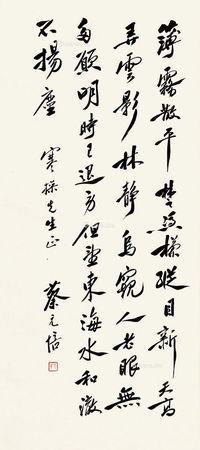 薄霧散平楚樓縱目新天高
弄雲影林靜鳥窺人老眼無
願明時已退身但望東海水和澂
不揚塵
寒操先生正
蔡元培